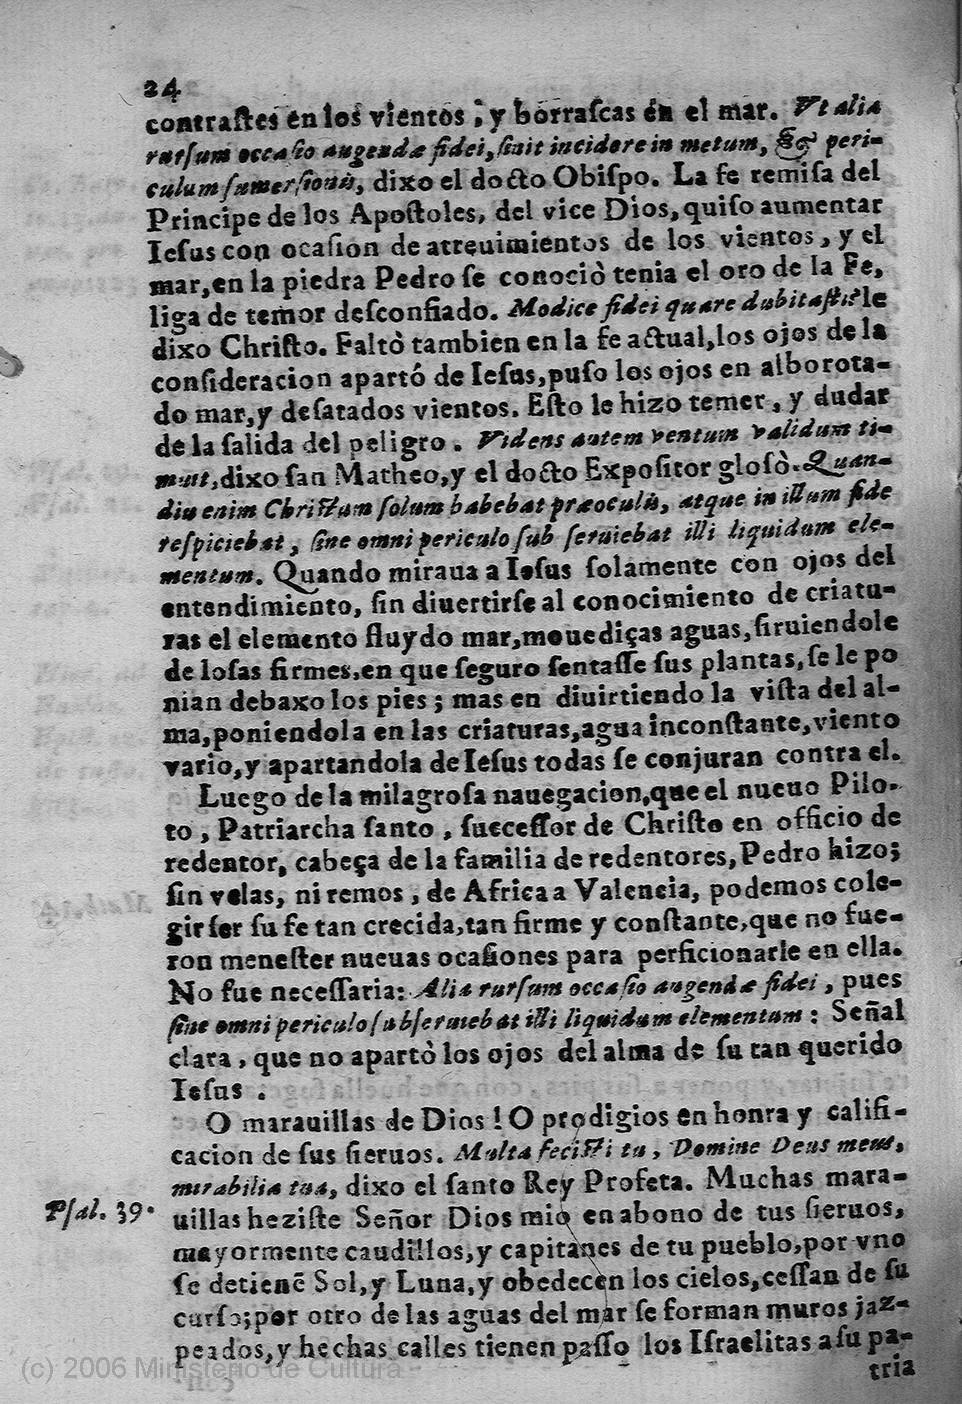 24
contraſtes en los vientos, y borraſcas en el mar. Vt alia
rurſum occaſio augendæ fidei, ſinit incidere in metum, & peri-
culum ſumerſionis, dixo el docto Obiſpo. La fe remiſa del
Principe de los Apoſtoles, del vice Dios, quiſo aumentar
Ieſus con ocaſion de atreuimientos de los vientos, y el
mar, en la piedra Pedro ſe conociò tenia el oro de la Fe,
liga de temor deſconfiado. Modice fidei quare dubitaſti? le
dixo Chriſto. Faltò tambien en la fe actual, los ojos de la
conſideracion apartó de Ieſus, puſo los ojos en alborota-
do mar, y deſatados vientos. Eſto le hizo temer, y dudar
de la ſalida del peligro. Videns autem ventum validum ti-
muit, dixo ſan Matheo, y el docto Expoſitor gloſò. Quan-
diu enim Chriſtum ſolum habebat præoculis, atque in illum fide
reſpiciebat, ſine omni periculo ſub ſeruiebat illi liquidum ele-
mentum. Quando miraua a Ieſus ſolamente con ojos del
entendimiento, ſin diuertirſe al conocimiento de criatu-
ras el elemento fluydo mar, mouediças aguas, ſiruiendole
de loſas firmes, en que ſeguro ſentaſſe ſus plantas, ſe le po
nian debaxo los pies; mas en diuirtiendo la viſta del al-
ma, poniendola en las criaturas, agua inconſtante, viento
vario, y apartandola de Ieſus todas ſe conjuran contra el.
Luego de la milagroſa nauegacion, que el nueuo Pilo-
to, Patriarcha ſanto, ſucceſſor de Chriſto en officio de
redentor, cabeça de la familia de redentores, Pedro hizo;
ſin velas, ni remos, de Africa a Valencia, podemos cole-
gir ſer ſu fe tan crecida, tan firme y conſtante, que no fue-
ron meneſter nueuas ocaſiones para perficionarle en ella.
No fue neceſſaria: Alia rurſum occaſio augendæ fidei, pues
ſine omni periculo ſubſeruiebat illi liquidum elementum: Señal
clara, que no apartò los ojos del alma de ſu tan querido
Ieſus.
O marauillas de Dios! O prodigios en honra y califi-
cacion de ſus ſieruos. Multa feciſti tu, Domine Deus meus,
mirabilia tua, dixo el ſanto Rey Profeta. Muchas mara-
Pſal. 39. uillas heziſte Señor Dios mio en abono de tus ſieruos,
mayormente caudillos, y capitanes de tu pueblo, por vno
ſe detienē Sol, y Luna, y obedecen los cielos, ceſſan de ſu
curſo; por otro de las aguas del mar ſe forman muros jaz-
peados, y hechas calles tienen paſſo los Iſraelitas a ſu pa-
tria
(c) 2006 Ministerio de Cultura